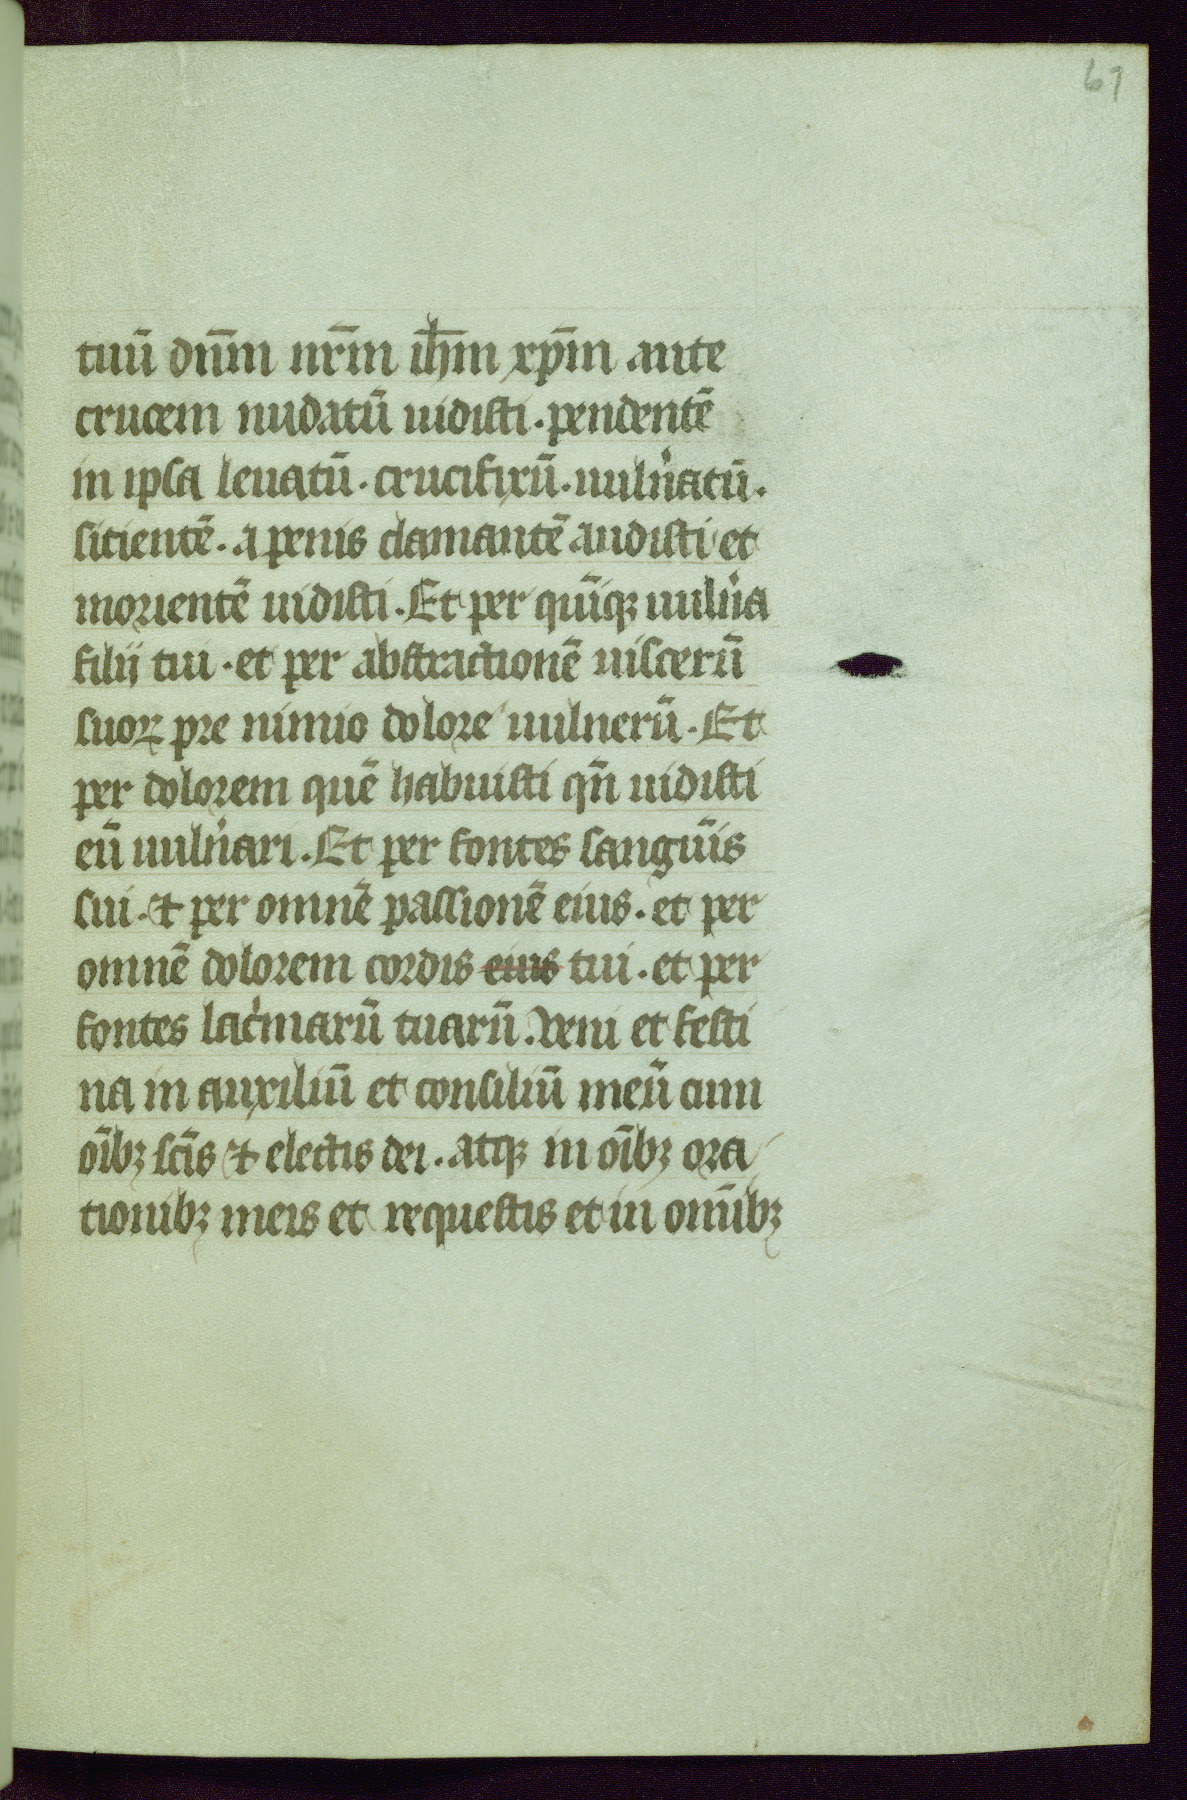 67
tuū dn̄m nr̄m ih̄m xp̄m ante
crucem nudatū uidisti. pendentē
in ipsa leuatū. crucifixū. uuln̉atū.
sitientē. a penis clamantē audisti et
morientē uidisti. Et per quīqꝫ uuln̉a
filij tui. et per abstractionē uiscerū
suoꝝ pre nimio dolore uulnerū. Et
per dolorem quē habuisti qn̄ uidisti
eū uuln̉ari. Et per fontes sanguīs
sui. & per omnē passionē eius. et per
omnē dolorem cordis eius tui. et per
fontes lac̉marū tuarū. Veni et festi
na in auxiliū et consiliū meū cum
oībꝫ sc̄is & electis dei. atqꝫ in oībꝫ ora
tionibꝫ meis et requestis et in omībꝫ